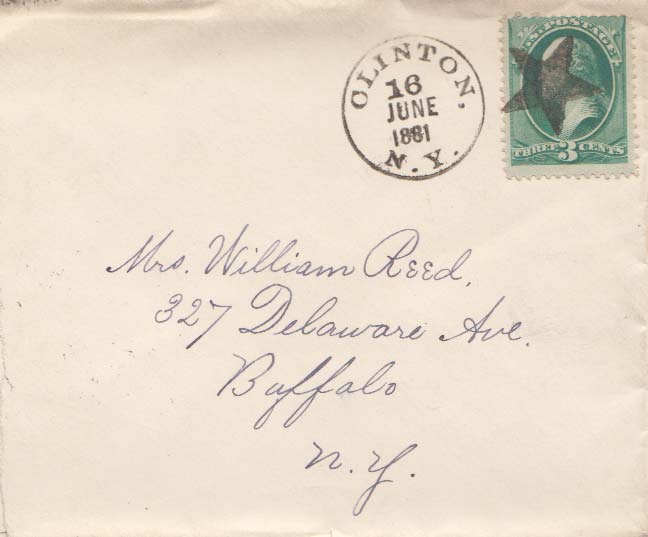 CLINTON,
16
JUNE
1881
N.Y.
U.S. POSTAGE
THREE 3 CENTS
Mrs. William Reed.
327 Delaware Ave.
Buffalo
N.Y.